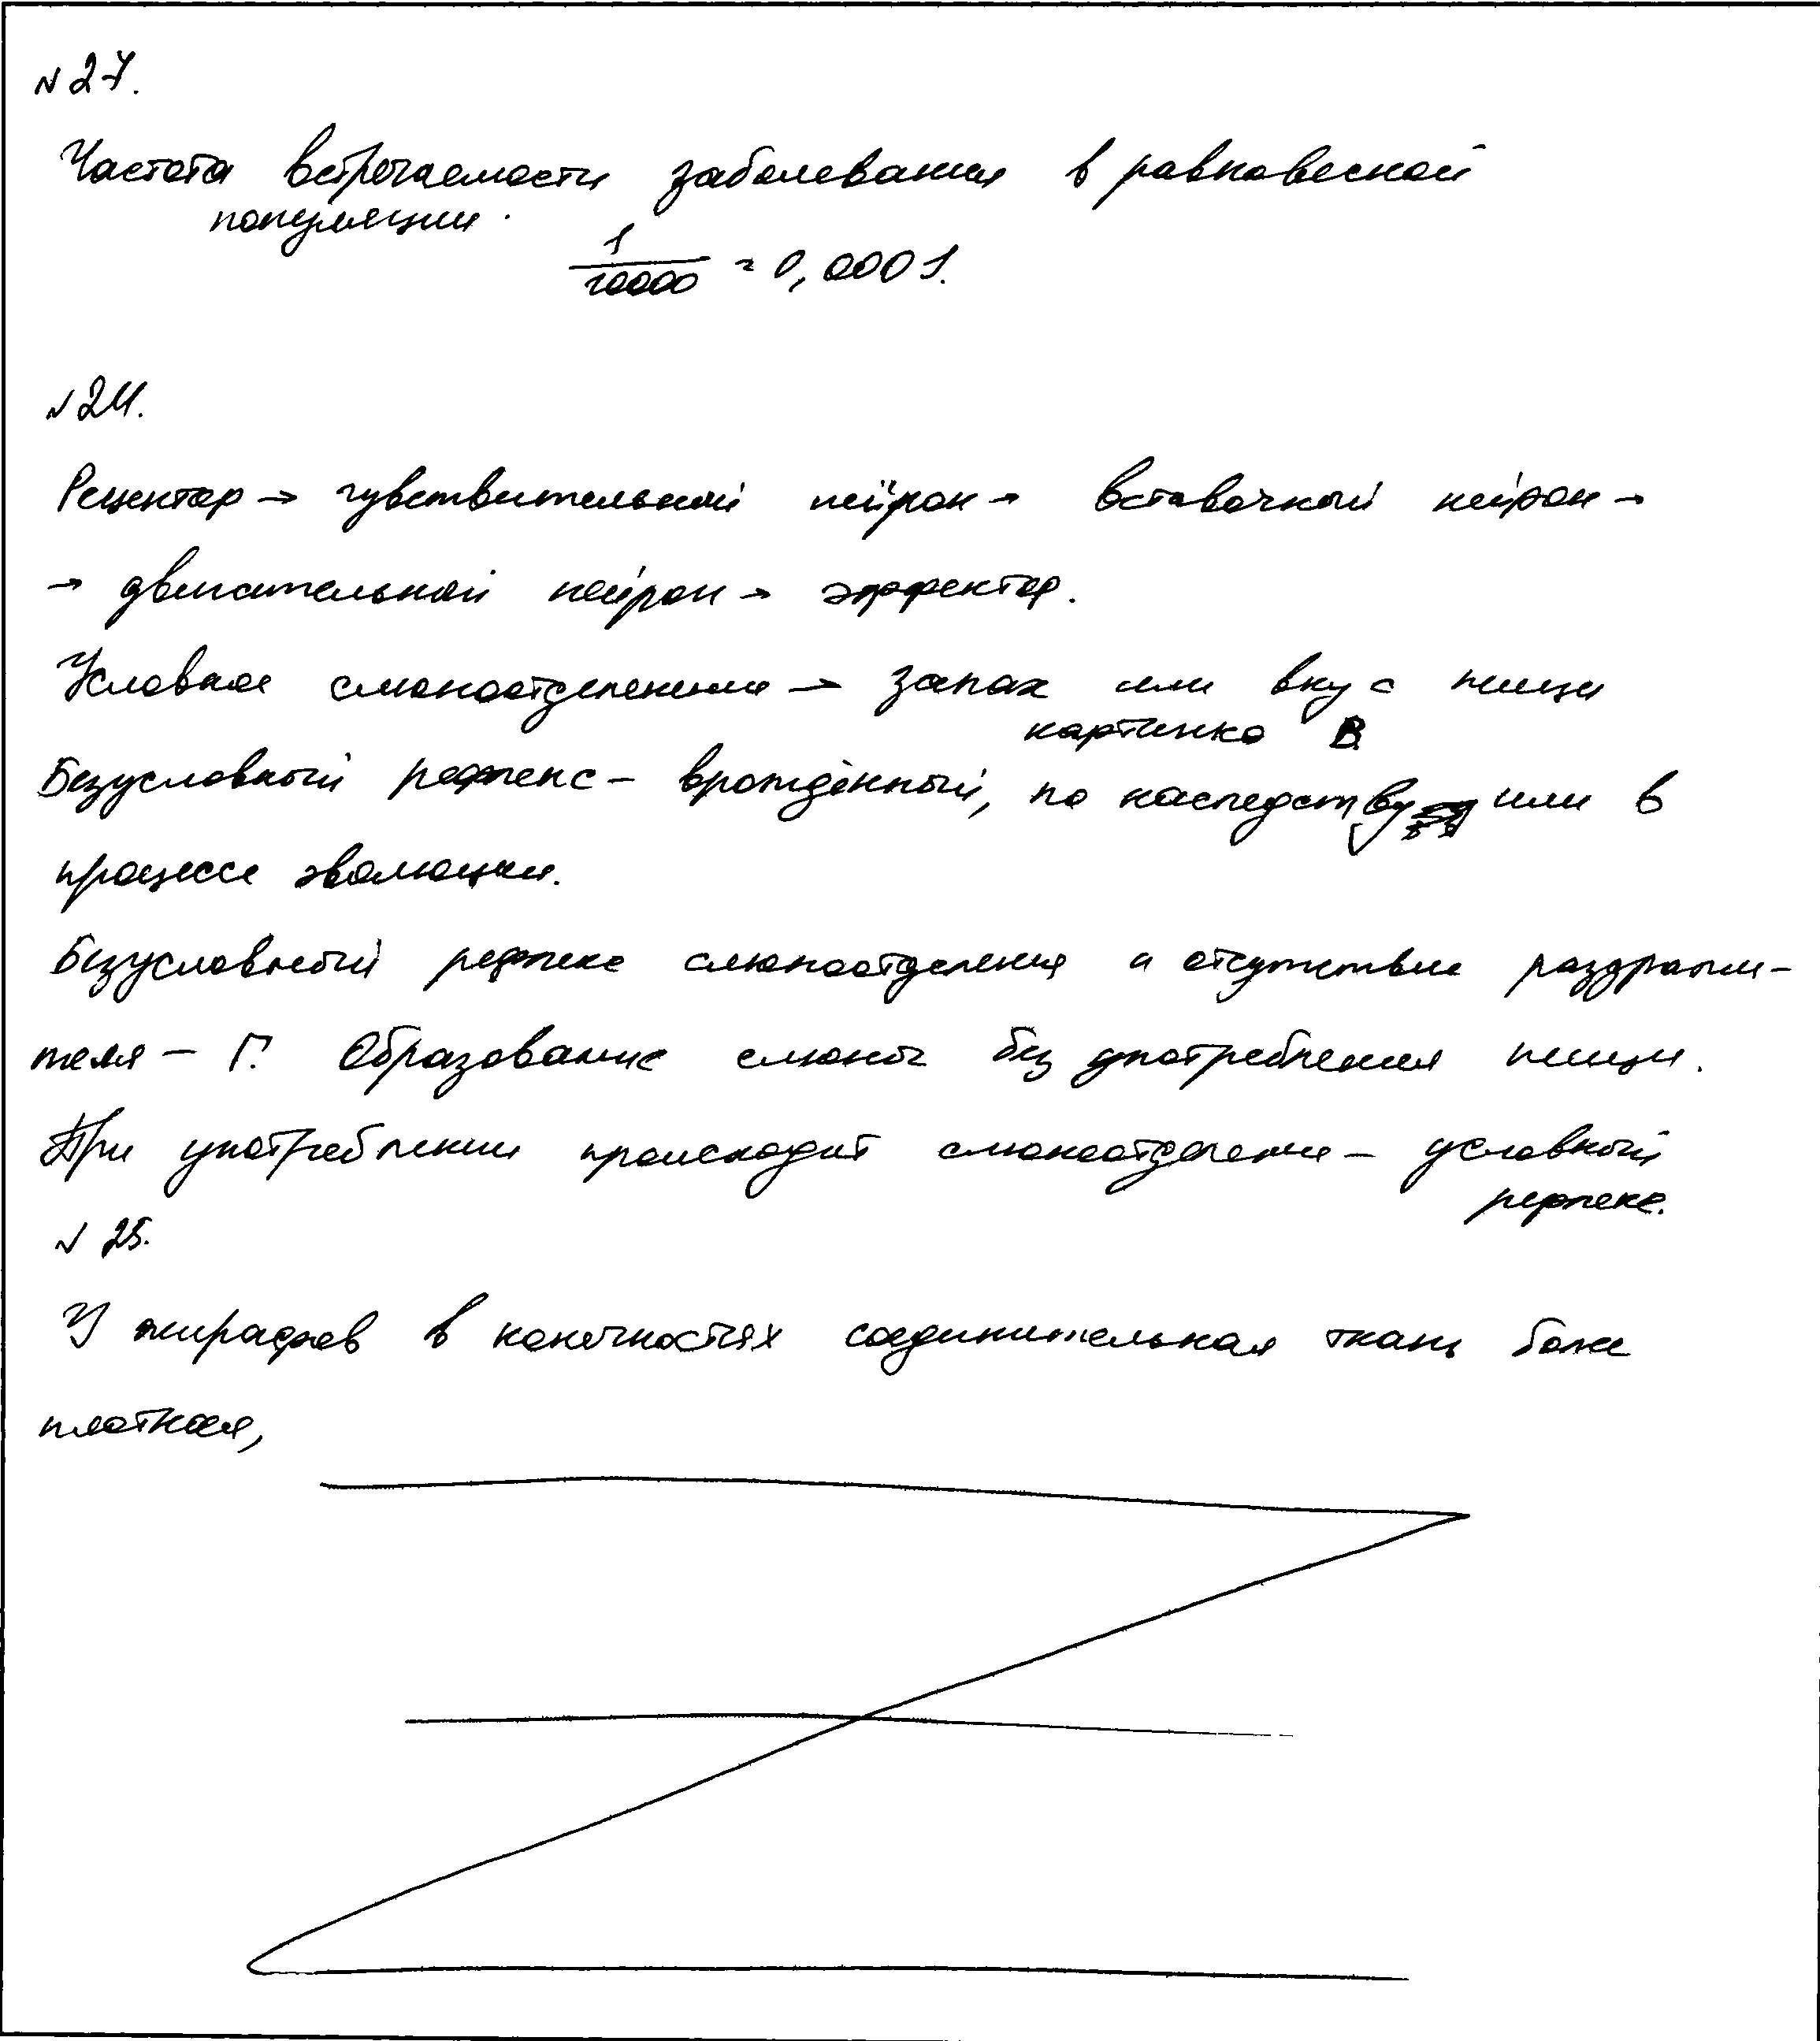 №27.
Частота встречаемости заболевания в равновесной
популяции.
1/10000 = 0,0001.
№24.
Рецептор → чувствительный нейрон → вставочный нейрон →
→ двигательный нейрон → эффектор.
Условное слюноотделение → запах или вкус пищи
картинка В.
Безусловный рефлекс – врождённый, по наследству или в
процессе эволюции.
Безусловный рефлекс слюноотделения и отсутствие раздражи-
теля – Г. Образование слюны без употребления пищи.
При употреблении происходит слюноотделение – условный
рефлекс.
№25.
У жирафов в конечностях соединительная ткань более
плотная,